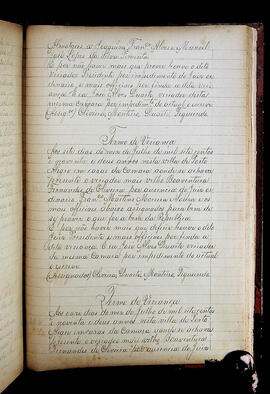 Almotaces a Joaquim Franco Alvares e Manoel
José Lopes da Silva
E por não haver mais que prover houve o dito
vereador Presidente por impedimento do Juiz or-
dinario, e mais officiaes por finda a dita vere-
ança. E eu José Alves Duarte vereador desta
mesma Camara por impedimento do actual o escrevi
(Assignos) Oliveira, Monteiro, Duarte, Figueiredo
Termo de Vereança
Aos sete dias do mez de Julho de mil sete centos
e noventa e dous annos nesta villa de Porto
Alegre em casas da Camara aonde se achava
presente o vereador mais velho Boaventura
Fernandes de Oliveira por ausencia do Juiz or-
dinario Franco Martins Moreira e os
mais officiaes abaixo assignados para bem de
se prover o que for a bem da Republica
E por não haver mais que deferir houve o dito
Juiz Presidente e mais officiaes por finda a
dita vereança. E eu José Alves Duarte vereador
da mesma Camara por impedimento do actual
o escrevi
(Assignados) Oliveira, Duarte, Monteiro, Figueiredo
Termo de Vereança
Aos onze dias do mez de Julho de mil sete centos
e noventa e dous annos nesta villa de Porto
Alegre em casas da Camara aonde se achava
presente o vereador mais velho Boaventura
Fernandes de Oliveira por ausencia do Juiz